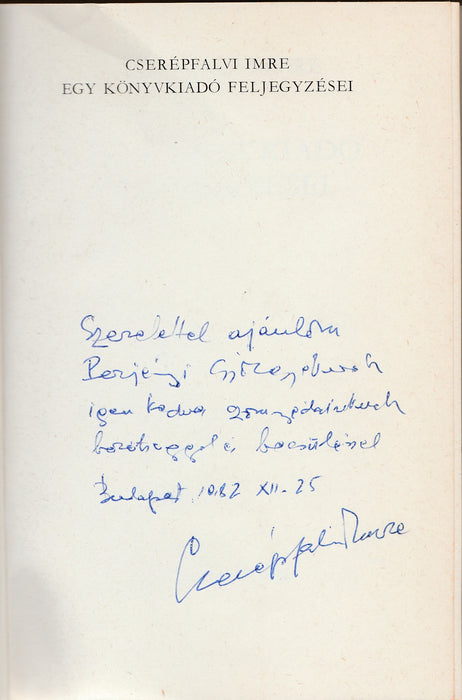 CSERÉPFALVI IMRE
EGY KÖNYVKIADÓ FELJEGYZÉSEI
Szeretettel ajánlom
Perjényi
igen kedves szomszédainknak
barátsággal és becsüléssel
Budapest, 1982 XII. 25
Cserépfalvi Imre